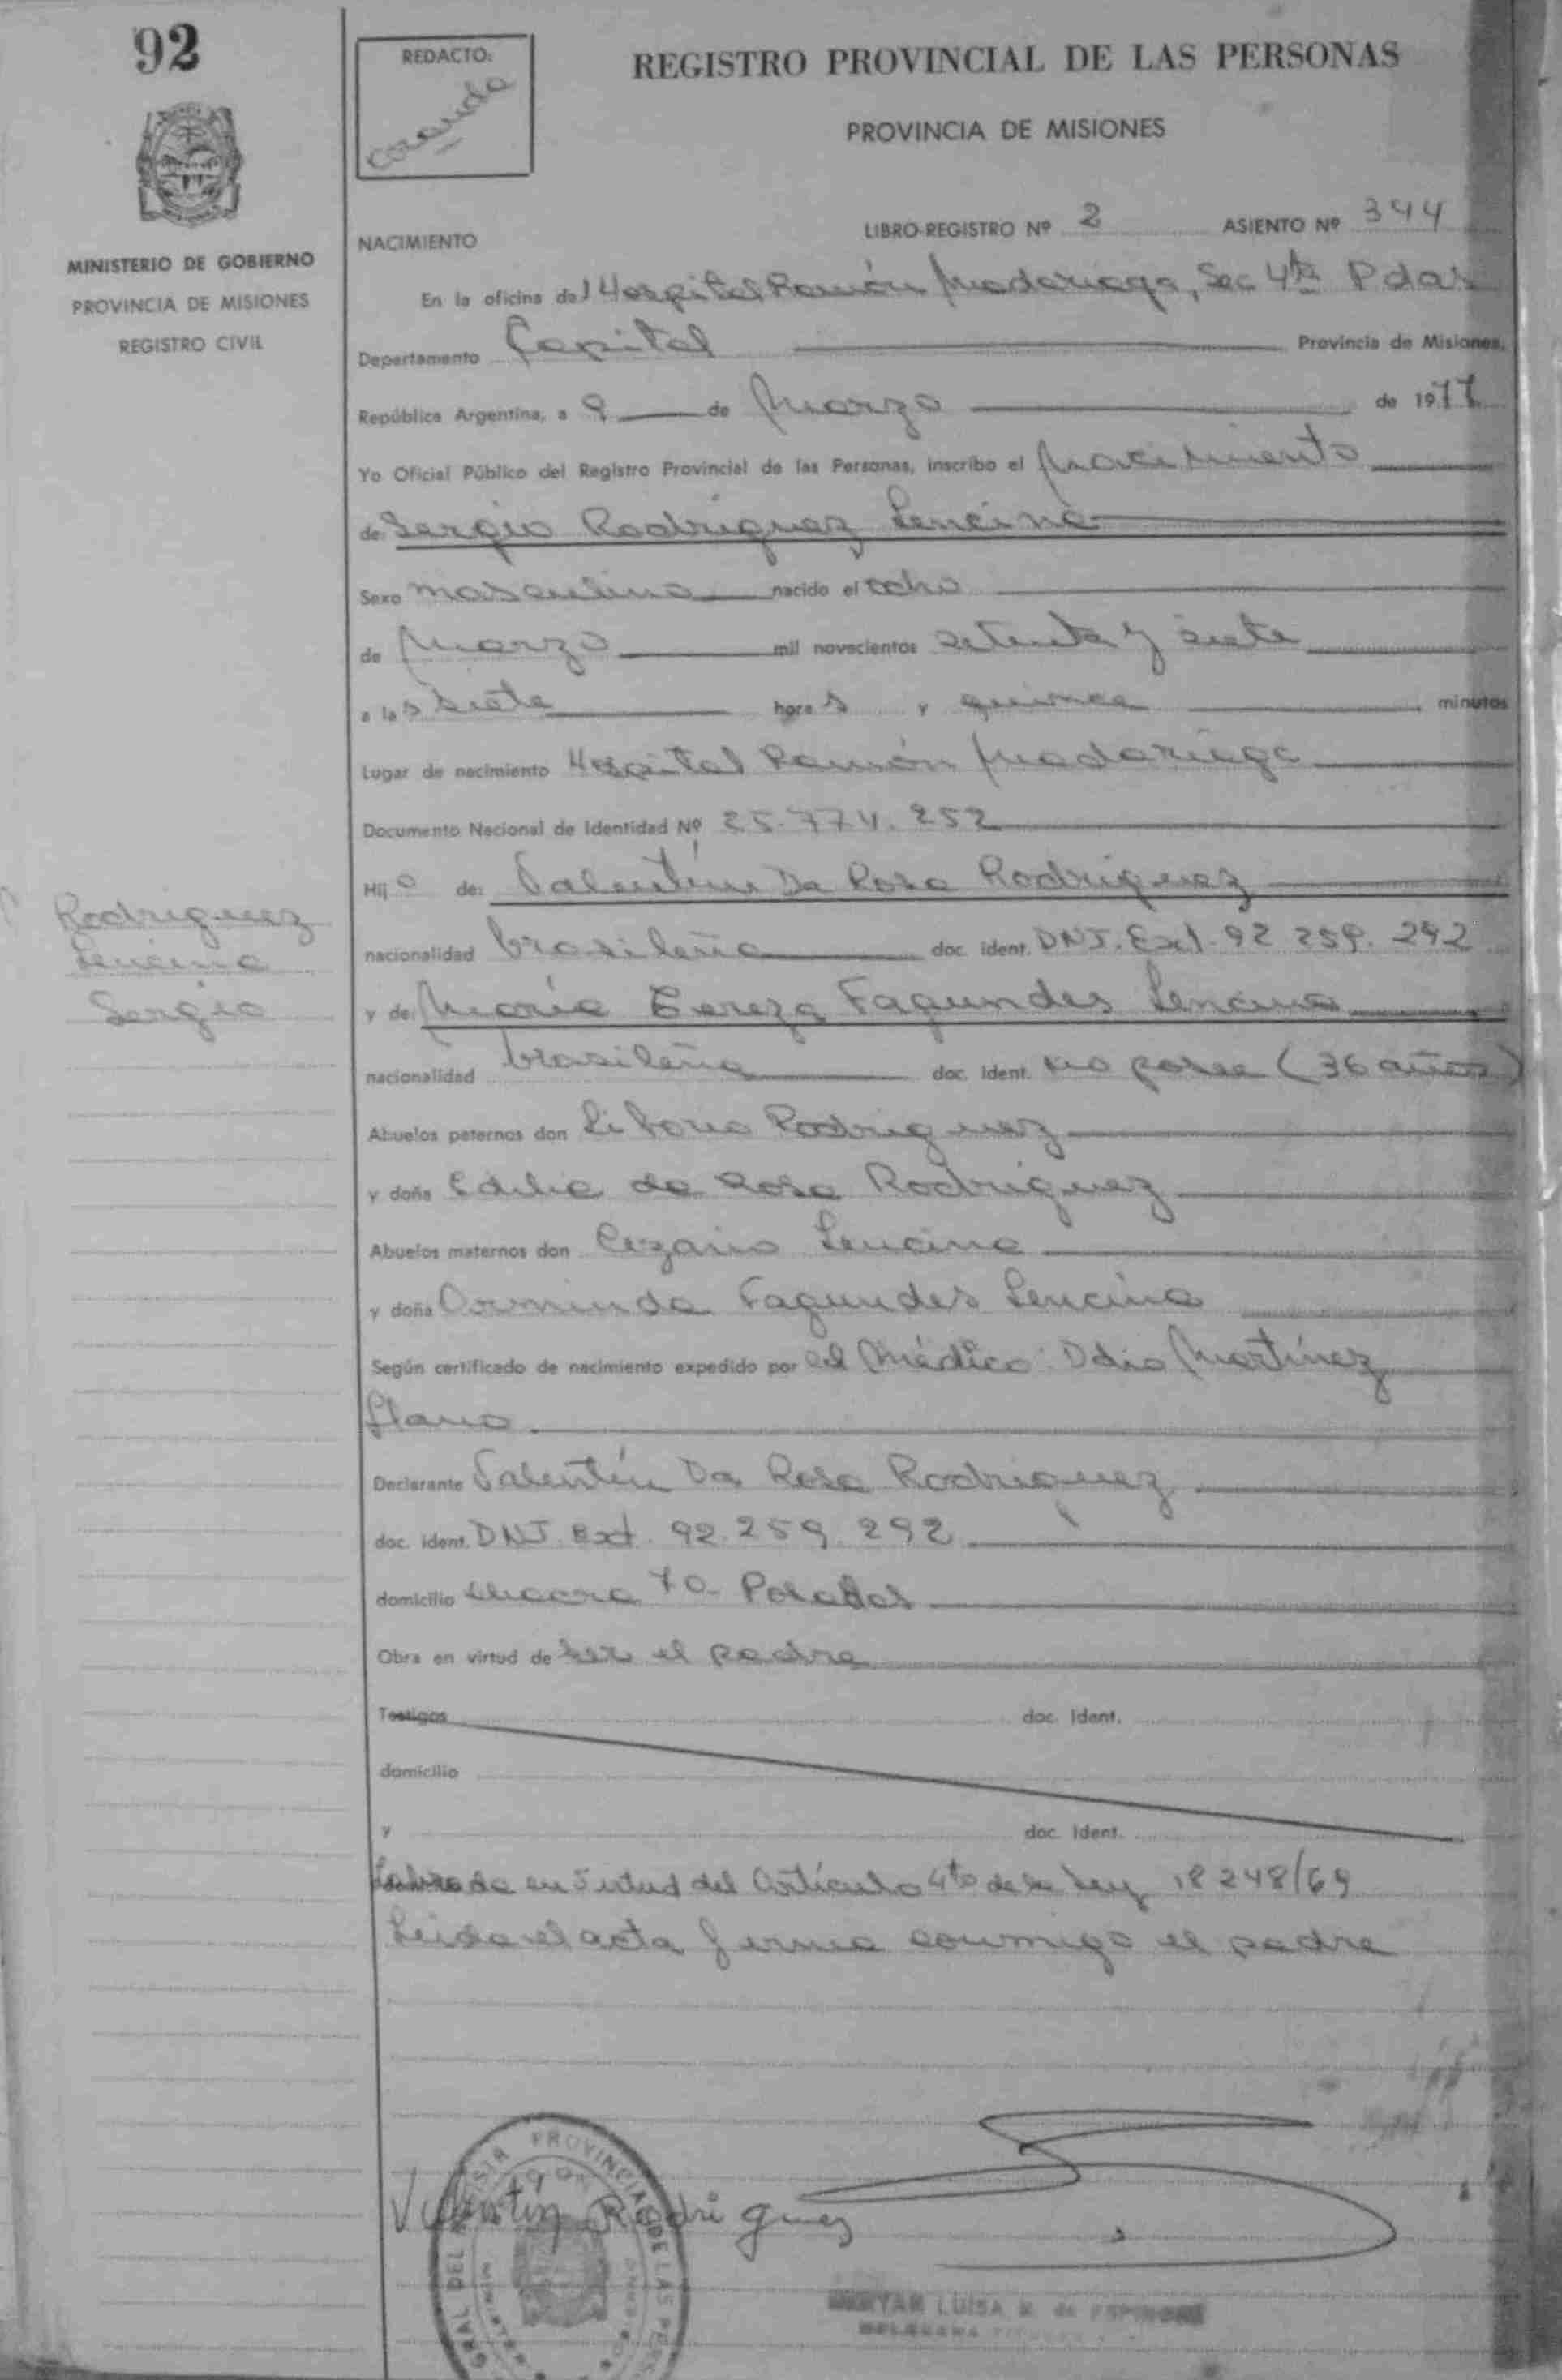 92
REDACTO:
REGISTRO PROVINCIAL DE LAS PERSONAS
PROVINCIA DE MISIONES
MINISTERIO DE GOBIERNO
PROVINCIA DE MISIONES
REGISTRO CIVIL
NACIMIENTO
LIBRO-REGISTRO Nº 2 ASIENTO Nº 344
En la oficina del Hospital Ramón Madariaga, Sec 4ta Pdas
Departamento Capital Provincia de Misiones,
República Argentina, a 9 de Marzo de 1977
Yo Oficial Público del Registro Provincial de las Personas, inscribo el Nacimiento
de: Sergio Rodriguez Lencina
Sexo masculino nacido el ocho
de Marzo mil novecientos setenta y siete
a las siete horas y quince minutos
Lugar de nacimiento Hospital Ramón Madariaga
Documento Nacional de Identidad Nº 25.774.252
Hijo de: Valentín Da Rosa Rodriguez
nacionalidad brasileña doc. ident. DNI. Ext. 92 259. 292
y de: María Tereza Fagundes Lencina
nacionalidad brasileña doc. ident. no posee (36 años)
Abuelos paternos don Liborio Rodriguez
y doña Edilia da Rosa Rodriguez
Abuelos maternos don Cezario Lencina
y doña Orminda Fagundes Lencina
Según certificado de nacimiento expedido por el Médico: Delio Martínez
Llano
Declarante Valentín Da Rosa Rodriguez
doc. ident. DNI. Ext. 92.259.292
domicilio chacra 70- Posadas
Obra en virtud de ser el padre
Testigos doc. ident.
domicilio
y doc. ident.
Labrada en virtud del Artículo 4to de la Ley 18248/69
Leida el acta firma conmigo el padre
Rodriguez
Lencina
Sergio
Valentín Rodriguez
PROVINCIAL DE LAS
LUISA M. de ESPINOSA